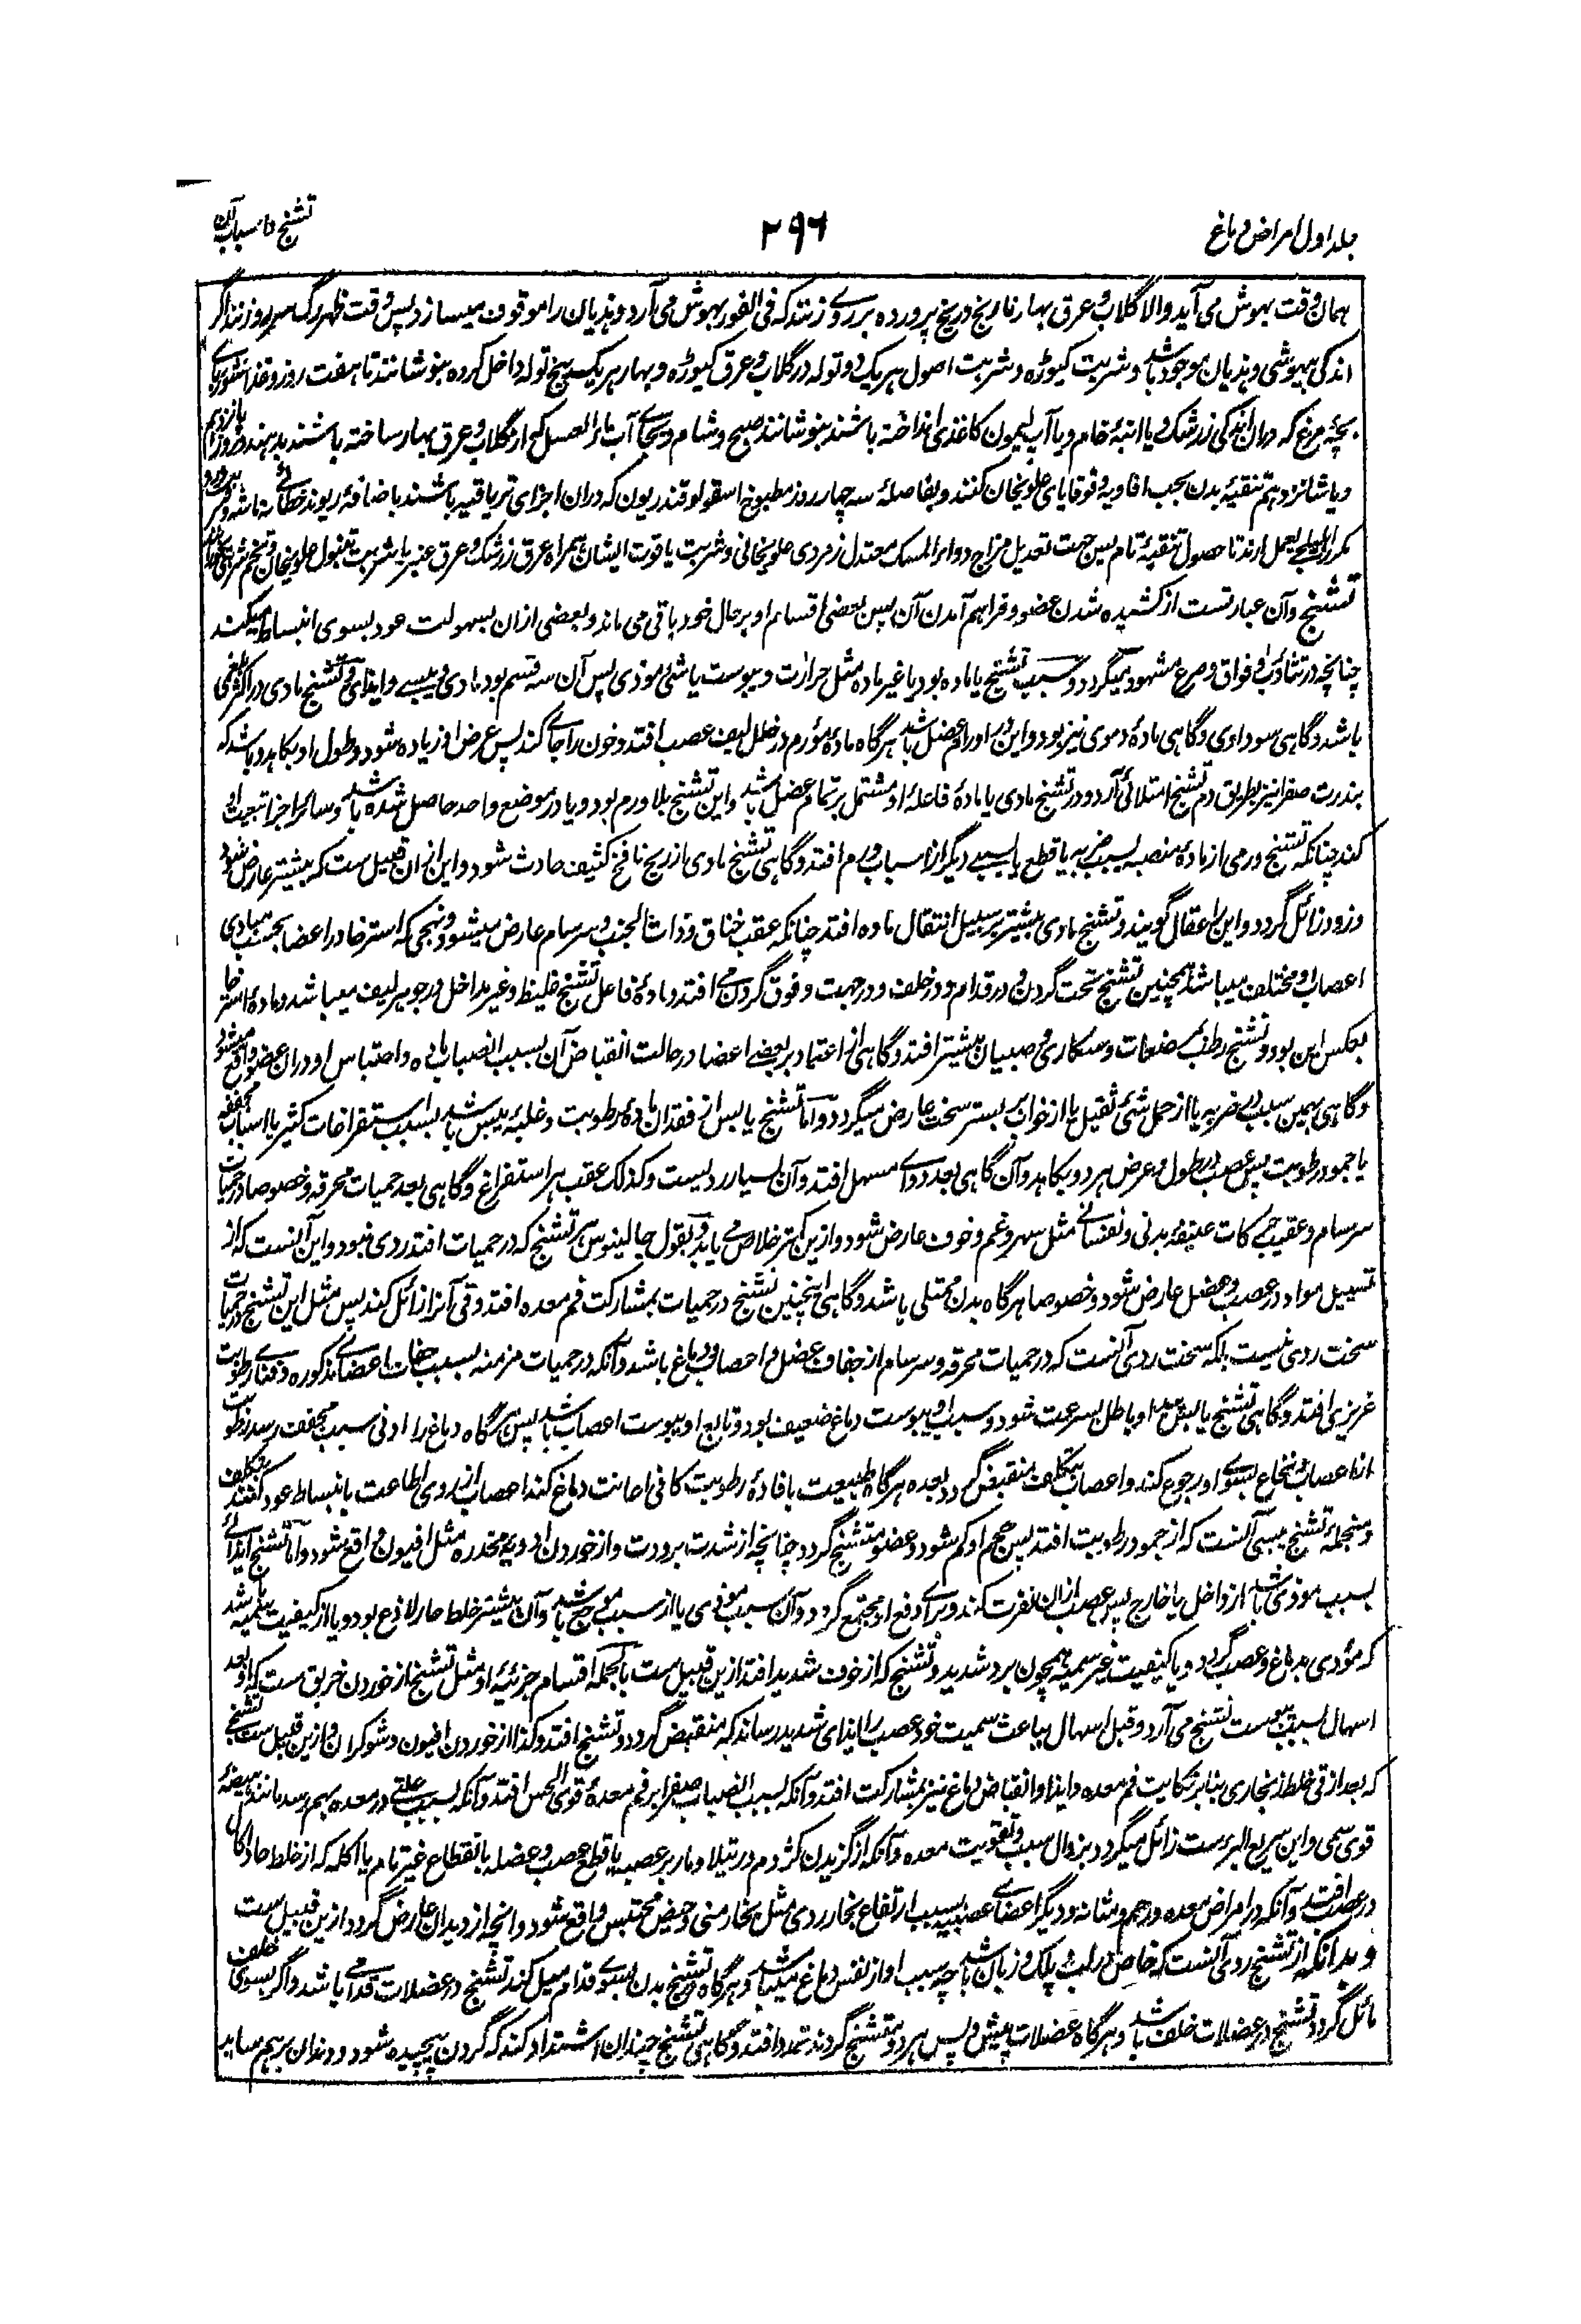 جلد اول امراض دماغ
۲۹۶
تشنج و اسباب آن
همان وقت بهوش می آید والا گلاب و عرق بهار نارنج در یخ پرورده بر روی زنند که فی الفور بهوش می آرد و هذیان را موقوف میسازد پس وقت ظهر رگ سر روزند اگر
اندکی بیهوشی و هذیان موجود باشد شربت کیوڑه و شربت اصول هر یک دو توله در گلاب و عرق کیوڑه و بهار هر یک پنج توله داخل کرده بنوشانند تا هفت روز و غذا شوربای
بچهٔ مرغ که دران اندکی زرشک و یا انبهٔ خام و یا آب لیمون کاغذی انداخته باشند بنوشانند صبح و شام و بجای آب ماء العسل که از گلاب و عرق بهار ساخته باشند بدهند و روز یازدهم
و یا شانزدهم تنقیهٔ بدن بحب افاویه و قوقایای علویخان کنند و بفاصلهٔ سه چهار روز مطبوخ اسقولوقندریون که دران اجزای تریاقیه باشند باضافهٔ ریوند خطائی
مکرر بعمل آرند تا حصول تنقیهٔ تام پس جهت تعدیل مزاج دواء المسک معتدل زمردی علویخانی و شربت یاقوت ایشان همراه عرق زرشک و عرق عنبر یا شربت
تشنج و آن عبارتست از کشیده شدن عضو و فراهم آمدن آن پس بعضی اقسام او بر حال خود باقی می ماند و بعضی ازان بسهولت عود بسوی انبساط میکند
چنانچه در تثاؤب و فواق و صرع مشهود میگردد و سبب تشنج یا ماده بود یا غیر ماده مثل حرارت و یبوست یا شئی موذی پس آن سه قسم بود مادی و یبسی و ایذائی و تشنج مادی در اکثر بلغمی
باشد و گاهی سوداوی و گاهی مادهٔ دموی نیز بود و این در اورام عضل باشد هرگاه مادهٔ مورم در خلل لیف عصب افتد و خون را جای کند پس عرض او زیاده شود و طول او بکاهد و باشد که
بندرت صفرا نیز بطریق دم تشنج امتلائی آرد و در تشنج مادی یا مادهٔ فاعلهٔ او مشتمل بر تمام عضل باشد و این تشنج بلا ورم بود و یا در موضع واحد حاصل شده باشد و سائر اجزا تبعیت او
کند چنانکه تشنج ورمی از مادهٔ منصبه بسبب ضربه یا قطع یا بسببی دیگر از اسباب ورم افتد و گاهی تشنج مادی از ریح نافخ کثیف حادث شود و این ازان قبیل ست که بیشتر عارض شود
و زود زائل گردد و این را عقال گویند و تشنج مادی بیشتر بر سبیل انتقال ماده افتد چنانکه عقب خناق و ذات الجنب و سرسام عارض میشود و بنهجی که استرخا در اعضا بحسب مبادی
اعصاب او مختلف میباشد همچنین تشنج تحت گردن و در قدام و در خلف و در جهت و فوق گردن می افتد و مادهٔ فاعل تشنج غلیظ و غیر مداخل در جوهر لیف میباشد و مادهٔ استرخا
بعکس این بود و تشنج رطب بضعاف و سکاری و صبیان بیشتر افتد و گاهی از اعتماد بر بعضی اعضا در حالت انقباض آن بسبب انصباب ماده و احتباس او دران عضو واقع میشود
و گاهی بهمین سبب از ضربه یا از حمل شئی ثقیل یا از خواب بر بستر سخت عارض میگردد و اما تشنج یابس از فقدان مادهٔ رطوبت و غلبهٔ یبس باشد بسبب استفراغات کثیر یا اسباب مجففه
یا جمود رطوبت پس عصب در طول و عرض هر دو بکاهد و آن گاهی بعد دوای مسهل افتد و آن بسیار ردیست و کذلک عقب هر استفراغ و گاهی بعد حمیات محرقه و خصوصا در حمیات
سرسام و عقب حرکات عنیفهٔ بدنی و نفسانی مثل سهر و غم و خوف عارض شود و ازین کمتر خلاص می یابد و بقول جالینوس هر تشنج که در حمیات افتد ردی نبود و این آنست که از
تسییل مواد در عصب و عضل عارض شود و خصوصا هرگاه بدن ممتلی باشد و گاهی اینچنین تشنج در حمیات بمشارکت فم معده افتد و قی آنرا زائل کند پس مثل این تشنج در حمیات
سخت ردی نیست بلکه سخت ردی آنست که در حمیات محرقه و سرسام از جفاف عضل و اعصاب و دماغ باشد و آنکه در حمیات مزمنه بسبب جفاف اعضای مذکوره و فنای رطوبت
غریزی افتد و گاهی تشنج یابس او باطل بسرعت شود و سبب او یبوست دماغ ضعیف بود و تابع او یبوست اعصاب باشد پس هرگاه دماغ را ادنی سبب مجفف رسد رطوبت
از اعصاب و نخاع بسوی او رجوع کند و اعصاب بتکلف منقبض گردد بعده هرگاه طبیعت بافادهٔ رطوبت کافی اعانت دماغ کند اعصاب از روی اطاعت بانبساط عود کنند بتکلف
و منجمله تشنج یبسی آنست که از جمود رطوبت افتد پس حجم او کم شود و عضو متشنج گردد چنانچه از شدت برودت و از خوردن ادویهٔ مخدره مثل افیون واقع شود و اما تشنج ایذائی
بسبب موذی باشد از داخل یا خارج پس عصب ازان نفرت کند و برای دفع او مجتمع گردد و آن سبب موذی یا از سبب موجع باشد و آن بیشتر خلط حار لاذع بود و یا از کیفیت سمیه باشد
که مؤدی بدماغ و عصب گردد و یا کیفیت غیر سمیه همچون برد شدید و تشنج که از خوف شدید افتد ازین قبیل ست بالجمله اقسام جزئیهٔ او مثل تشنج از خوردن خربق ست که او بعد
اسهال بسبب یبوست تشنج می آرد و قبل اسهال بباعث سمیت خود عصب را ایذای شدید رساند که منقبض گردد و تشنج افتد و کذا از خوردن افیون و شوکران و ازین قبیل ست تشنجی
که بعد از قی خلط زنجاری بنابر نکایت فم معده و ایذا و انقباض دماغ نیز بمشارکت افتد و آنکه بسبب انصباب صفرا بر فم معدهٔ قوی الحس افتد و آنکه بسبب علتی در معده بهم رسد مانند هیضهٔ
قوی سمی و این سریع البرست زائل میگردد بزوال سبب و تقویت معده و آنکه از گزیدن کژدم و رتیلا و مار بر عصب یا قطع عصب و عضله بانقطاع غیر تام یا اکله که از خلط حاد اکال
در عصب افتد و آنکه در امراض معده و رحم و مثانه و دیگر اعضای عصبیه بسبب ارتفاع بخار ردی مثل بخار منی و حیض محتبس واقع شود و انچه از دیدان عارض گردد ازین قبیل ست
و بدانکه از تشنج ردی آنست که خاص در لب و پلک و زبان باشد چه سبب او از نفس دماغ میباشد و هرگاه در تشنج بدن بسوی قدام میل کند تشنج در عضلات قدامی باشد و اگر بسوی خلف
مائل گردد تشنج در عضلات خلف باشد و هرگاه عضلات پیش و پس هر دو متشنج گردند تمدد افتد و گاهی تشنج چندان اشتداد کند که گردن پیچیده شود و دندان برهم ساید